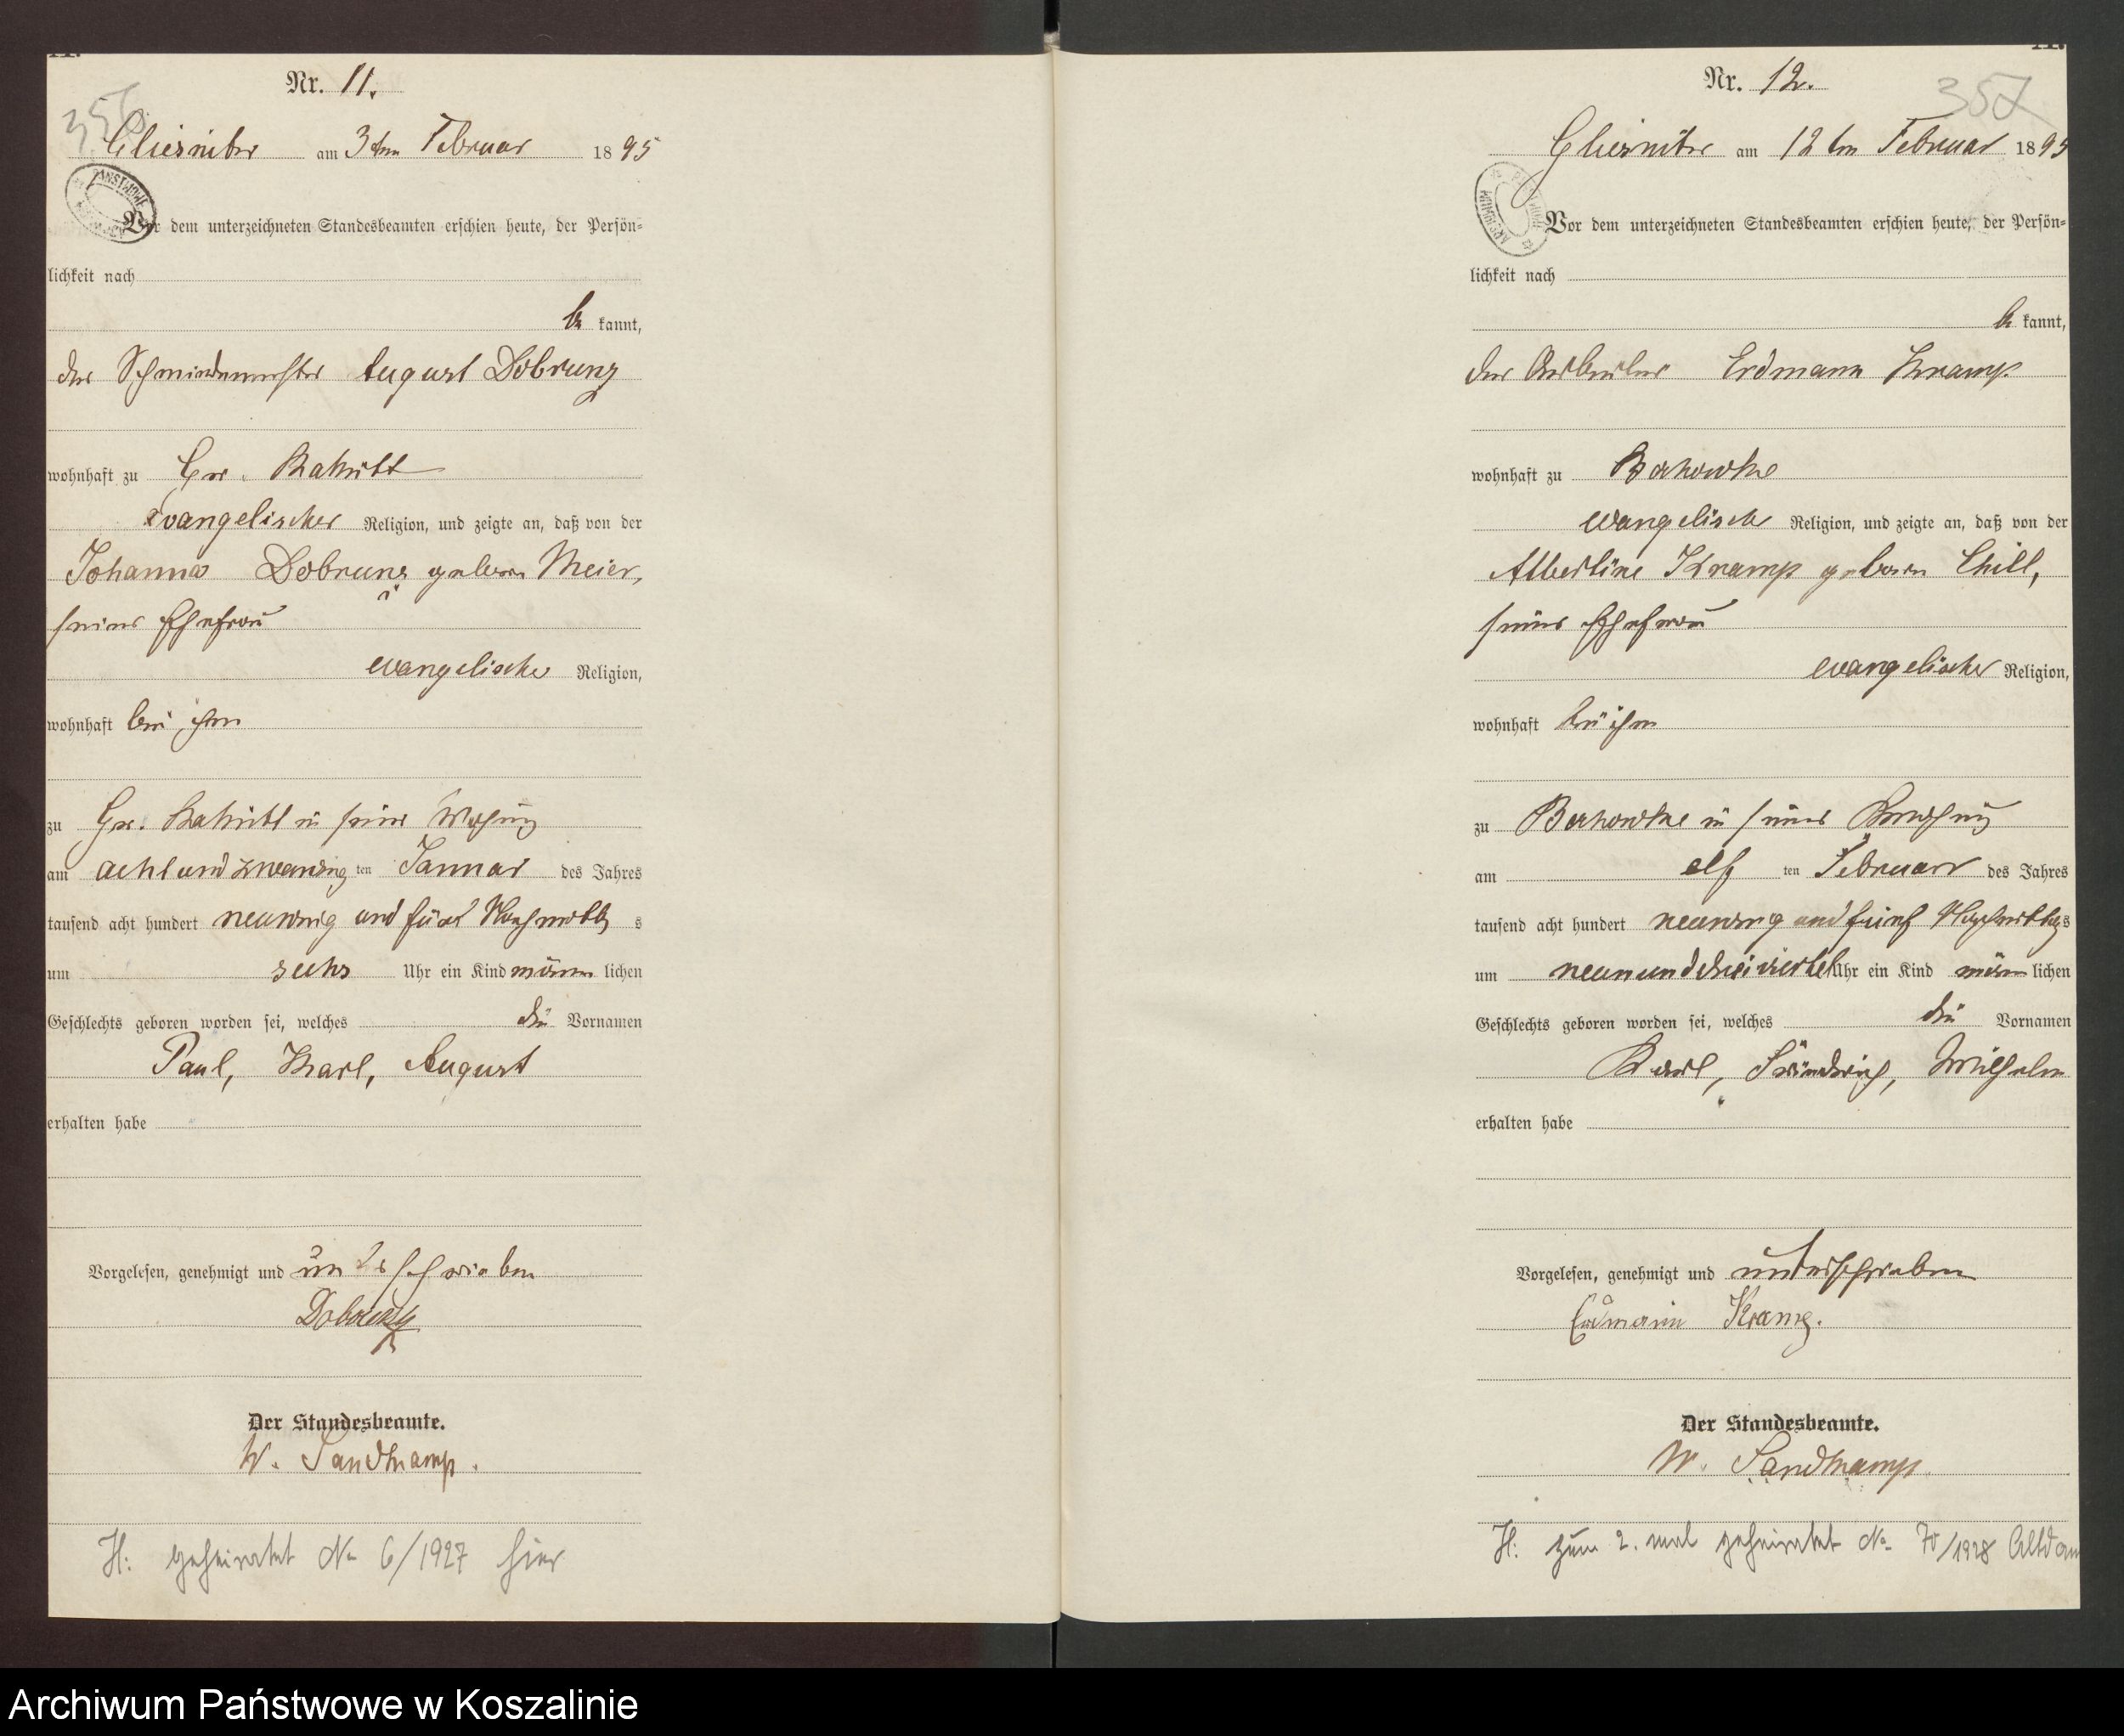 Nr. 11.
356
Gliesnitz am 3ten Februar 1895
Vor dem unterzeichneten Standesbeamten erschien heute, der Persön=
lichkeit nach
be kannt,
der Schmiedemeister August Dobrunz
wohnhaft zu Gr. Rakitt
evangelischer Religion, und zeigte an, daß von der
Johanna Dobrunz geboren Meier,
seiner Ehefrau
evangelischer Religion,
wohnhaft bei ihm
zu Gr. Rakitt in seiner Wohnung
am acht und zwanzig ten Januar des Jahres
tausend acht hundert neunzig und fünf Nachmittag s
um sechs Uhr ein Kind männ lichen
Geschlechts geboren worden sei, welches die Vornamen
Paul, Karl, August
erhalten habe
Vorgelesen, genehmigt und unterschrieben
Dobrunz
Der Standesbeamte.
W. Sandkamp.
H: geheiratet No 6/1927 hier
Nr. 12.
357
Gliesnitz am 12ten Februar 1895
Vor dem unterzeichneten Standesbeamten erschien heute, der Persön=
lichkeit nach
be kannt,
der Arbeiter Erdmann Kramp
wohnhaft zu Bochowke
evangelischer Religion, und zeigte an, daß von der
Albertine Kramp geboren Chill,
seiner Ehefrau
evangelischer Religion,
wohnhaft bei ihm
zu Bochowke in seiner Wohnung
am elf ten Februar des Jahres
tausend acht hundert neunzig und fünf Nachmittag s
um neun und dreiviertel Uhr ein Kind männ lichen
Geschlechts geboren worden sei, welches die Vornamen
Karl, Friedrich, Wilhelm
erhalten habe
Vorgelesen, genehmigt und unterschrieben
Erdmann Kramp.
Der Standesbeamte.
W. Sandkamp.
H: zum 2. mal geheiratet No 70/1928 Altdam
Archiwum Państwowe w Koszalinie